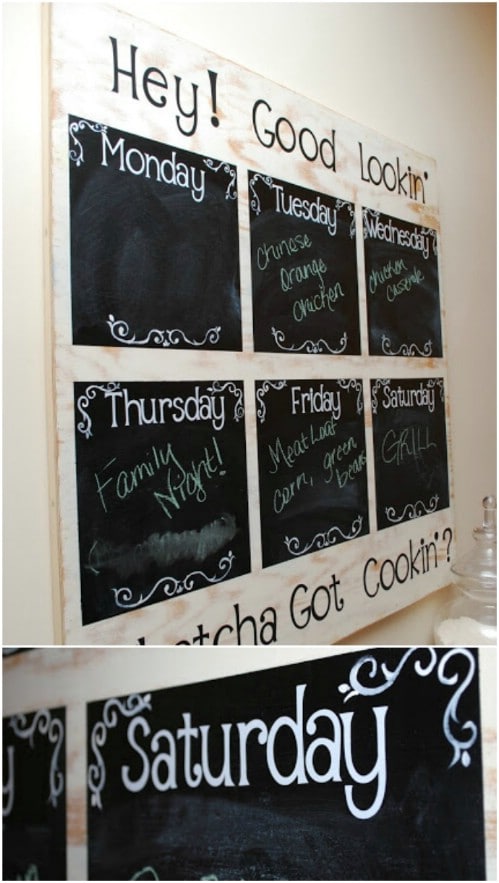 Hey! Good Lookin'
Monday
Tuesday
Chinese
Orange
Chicken
Wednesday
chicken
casserole
Thursday
Family
Night!
Friday
Meatloaf
corn, green
beans
Saturday
GRILL
Got Cookin'?
Saturday